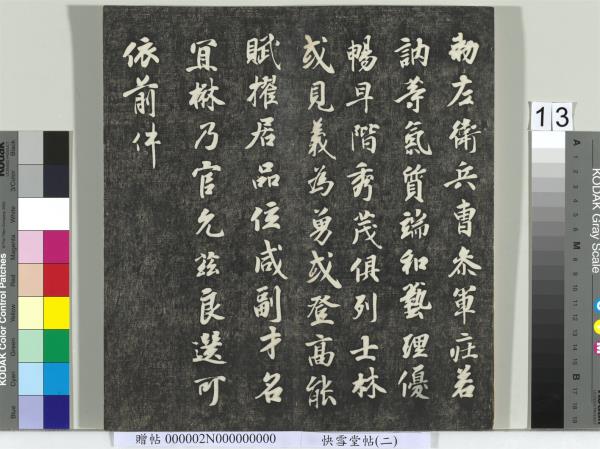 勅左衛兵曹叅軍莊若
訥等氣質端和藝理優
暢早階秀茂俱列士林
或見義為勇或登高能
賦擢居品位咸副才名
宜楙乃官允茲良選可
依前件
13
KODAK Color Control Patches
Blue
Cyan
Green
Yellow
Red
Magenta
White
3/Color
Black
KODAK Gray Scale
A 1 2 3 4 5 6 M 8 9 10 11 12 13 14 15 B 17 18 19
贈帖 000002N000000000 快雪堂帖(二)